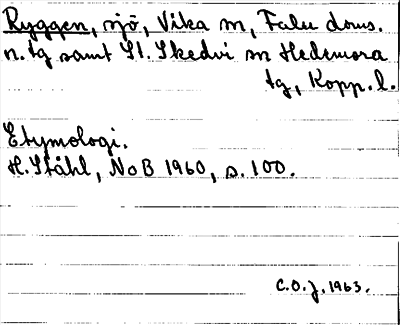 Ryggen, sjö, Vika sn, Falu doms.
n.tg samt St. Skedvi sn Hedemora
tg, Kopp. l.
Etymologi.
H. Ståhl, NoB 1960, s. 100.
C.O.J. 1963.